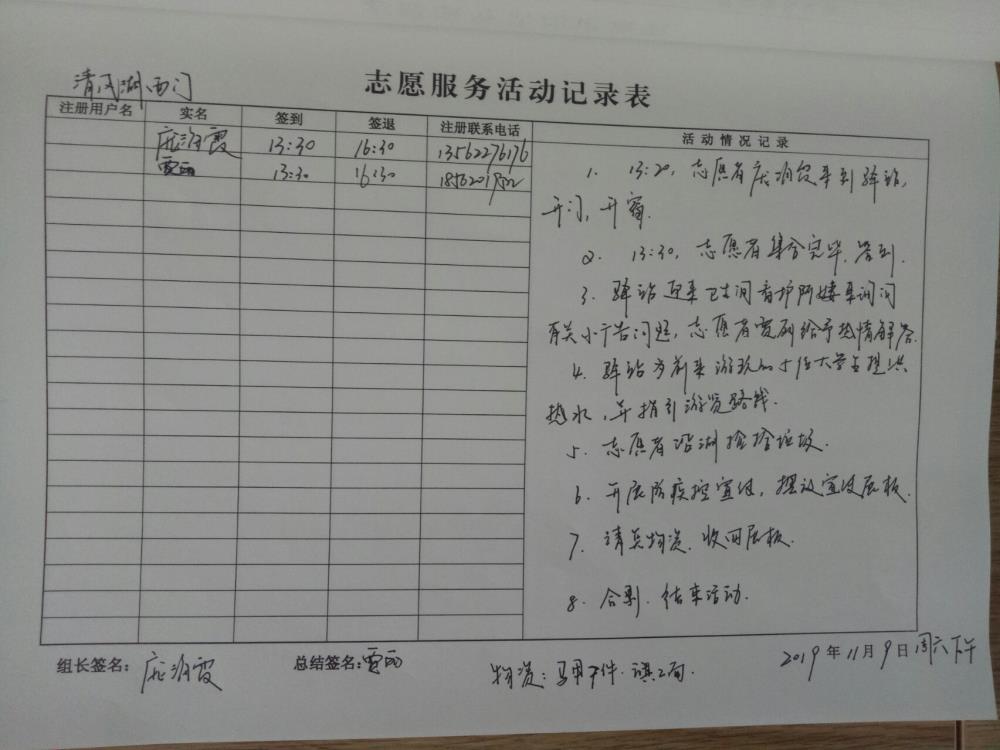 清风湖西门
志愿服务活动记录表
注册用户名 实名 签到 签退 注册联系电话 活动情况记录
庞海霞 13:30 16:30 13562276176
贾雨 13:30 16:30
1. 13:20,志愿者庞海霞来到驿站,
开门,开窗.
2. 13:30,志愿者集合完毕.签到.
3. 驿站迎来卫生间看护阿姨来询问
有关小广告问题,志愿者贾雨给予热情解答.
4. 驿站为前来游玩的5位大学生提供
热水,并指引游览路线.
5. 志愿者沿湖捡拾垃圾.
6. 开展防疾控宣传,摆放宣传展板.
7. 清点物资.收回展板.
8. 合影.结束活动.
组长签名: 庞海霞 总结签名: 贾雨 物资: 马甲 件.旗2面. 2019年11月9日周六下午